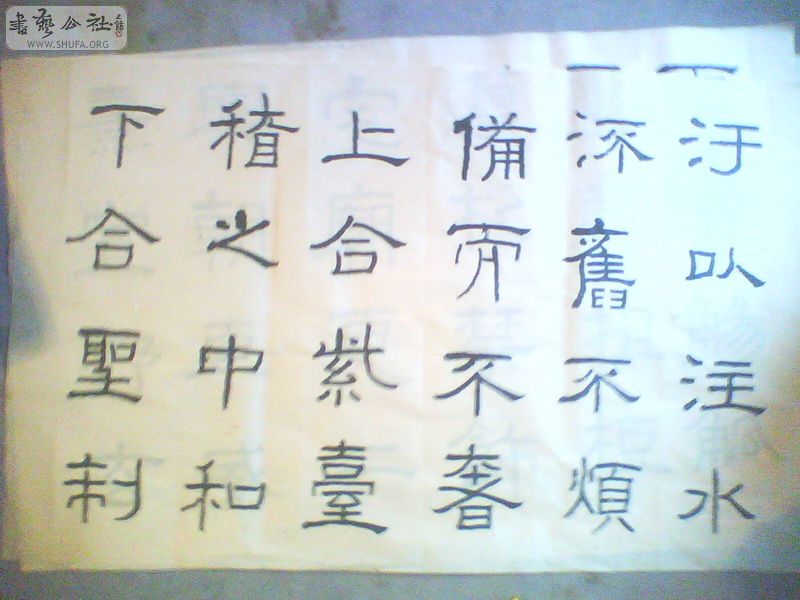 書藝公社
WWW.SHUFA.ORG
汙以注水
流舊不煩
備而不奢
上合紫臺
稽之中和
下合聖制